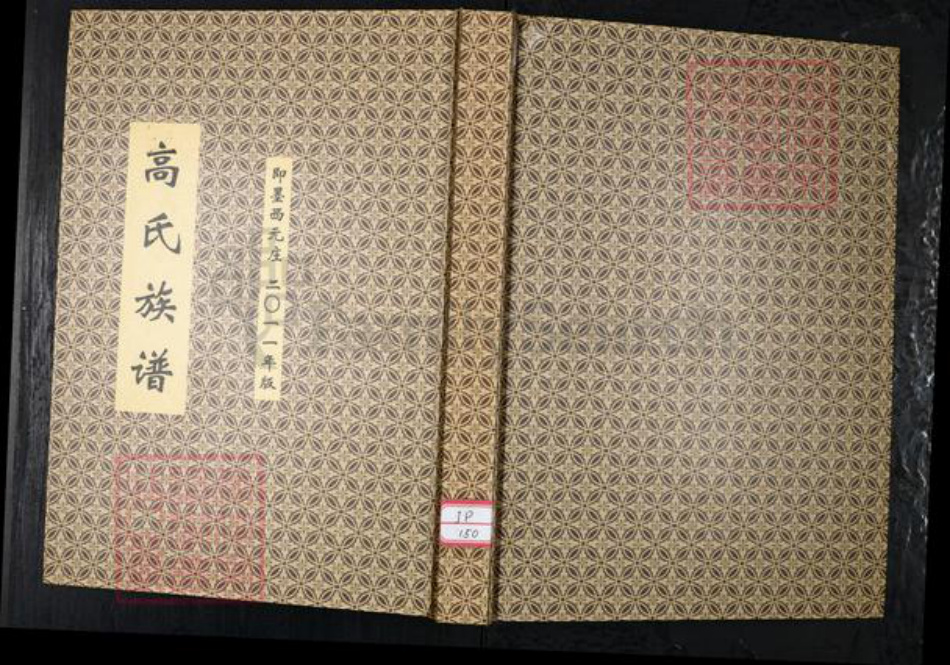 高氏族谱
即墨西元庄 二〇一一年版
JP
150